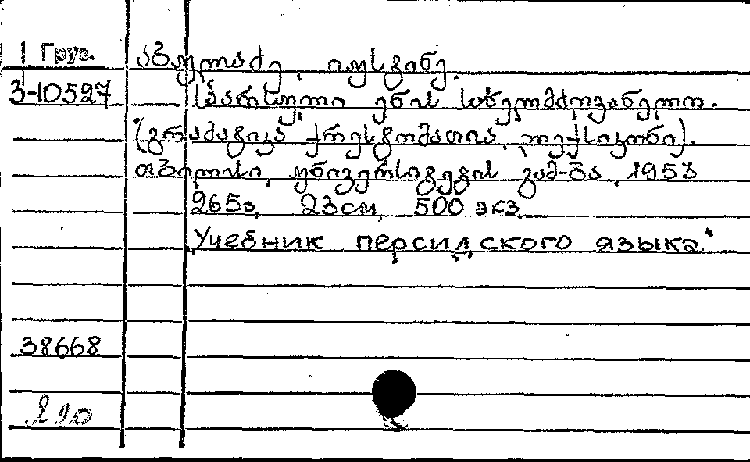 Груз.
3-10527
აბულაძე, იუსტინე.
სპარსული ენის სახელმძღვანელო.
(გრამატიკა ქრესტომათია, ლექსიკონი).
თბილისი, უნივერსიტეტის გამ-ბა, 1953
265გ, 23см, 500 экз.
Учебник персидского языка.
38668